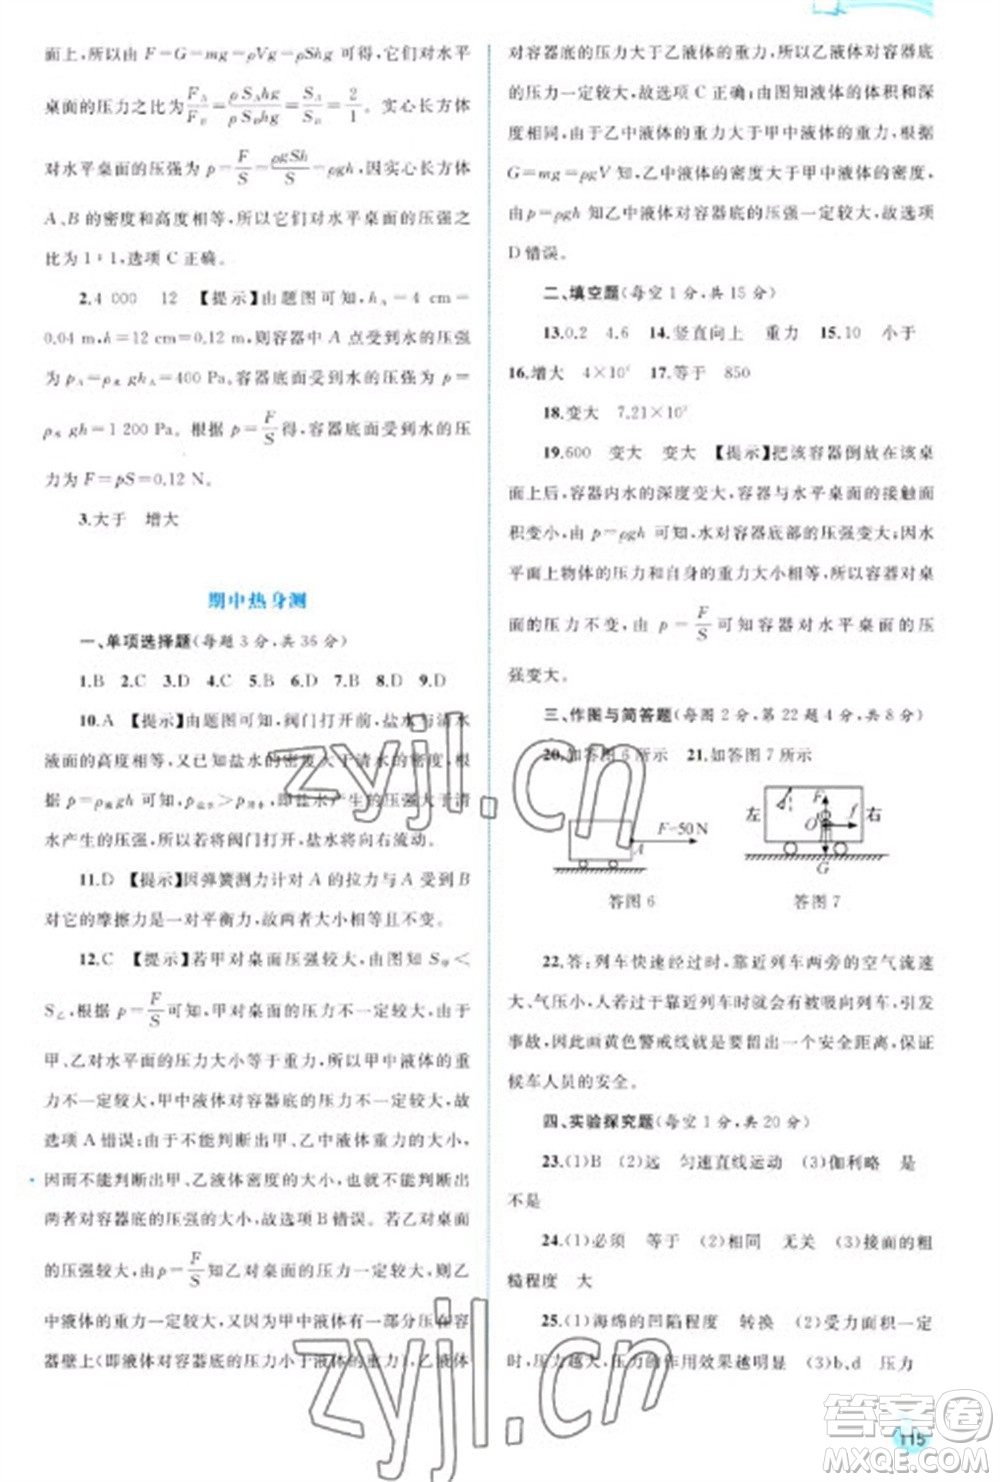 面上,所以由 F=G=mg=ρVg=ρShg 可得,它们对水平
桌面的压力之比为 F_A/F_B=ρS_Ahg/ρS_Bhg=S_A/S_B=2/1。实心长方体
对水平桌面的压强为 p=F/S=ρgSh/S=ρgh,因实心长方体
A、B 的密度和高度相等,所以它们对水平桌面的压强之
比为 1∶1,选项 C 正确。
2.4 000 12 【提示】由题图可知,h_A=4 cm=
0.04 m,h=12 cm=0.12 m,则容器中 A 点受到水的压强
为 p_A=ρ水gh_A=400 Pa。容器底面受到水的压强为 p=
ρ水gh=1 200 Pa。根据 p=F/S得,容器底受到水的压
力为 F=pS=0.12 N。
3.大于 增大
期中热身测
一、单项选择题(每题3分,共36分)
1.B 2.C 3.D 4.C 5.B 6.D 7.B 8.D 9.D
10.A 【提示】由题图可知,阀门打开前,盐水与清水
液面的高度相等,又已知盐水的密度大于清水的密度,根
据 p=ρ液gh 可知,p盐水>p清水,即盐水产生的压强大于清
水产生的压强,所以若将阀门打开,盐水将向右流动。
11.D 【提示】因弹簧测力计对 A 的拉力与 A 受到 B
对它的摩擦力是一对平衡力,故两者大小相等且不变。
12.C 【提示】若甲对桌面压强较大,由图知 S甲<
S乙,根据 p=F/S可知,甲对桌面的压力大小不一定较大,又
甲、乙对水平面的压力大小等于重力,所以甲中液体的重
力不一定较大,甲中液体对容器底的压力不一定较大,故
选项 A 错误;由于不能判断出甲、乙中液体重力的大小,
因而不能判断出甲、乙液体密度的大小,故不能判断出
两者对容器底的压强的大小,故选项 B 错误。若乙对桌面
的压强较大,由 p=F/S知乙对桌面的压力一定较大,则乙
中液体的重力一定较大,又因甲中液体有一部分压在容
器壁上(即液体对容器底的压力小于液体重力),乙液体
对容器底的压力大于乙液体的重力,所以乙液体对容器底
的压力一定较大,故选项 C 正确;由图知液体的体积和深
度相同,由于乙中液体的重力大于甲中液体的重力,根据
G=mg=ρgV 知,乙中液体的密度大于甲中液体的密度,
由 p=ρgh 知乙中液体对容器底的压强一定较大,故选项
D 错误。
二、填空题(每空1分,共15分)
13.0.2 4.6 14.竖直向上 重力 15.10 小于
16.增大 17.等于 850
18.变大
19.600 变大 变大 【提示】把该容器倒放在该桌
面上后,容器内水的深度变大,且与水平桌面的接触面
积变小,由 p=ρgh 可知,水对容器底部的压强变大;因水
平面上物体的压力和自身的重力大小相等,所以容器对桌
面的压力不变,由 p=F/S可知容器对水平桌面的压
强变大。
三、作图与简答题(每图2分,第22题4分,共8分)
20.如答图6所示 21.如答图7所示
F=50 N
A
答图6
左 O f 右
G
答图7
22.答:列车快速经过时,靠近列车两旁的空气流速
大、气压小,若过于靠近列车,可能会被吸向列车,引发
事故,因此画黄色警戒线可以留出一个安全距离,保证
候车人员的安全。
四、实验探究题(每空1分,共20分)
23.(1)B (2)远 匀速直线运动 (3)伽利略 是
不是
24.(1)必须 等于 (2)相同 无关 (3)接面的粗
糙程度 大
25.(1)海绵的凹陷程度 转换 (2)受力面积一定
时,压力越大,压力的作用效果越明显 (3)b、d 压力
zyjl.cn
zyjl.cn
答案圈
MXQE.COM
115